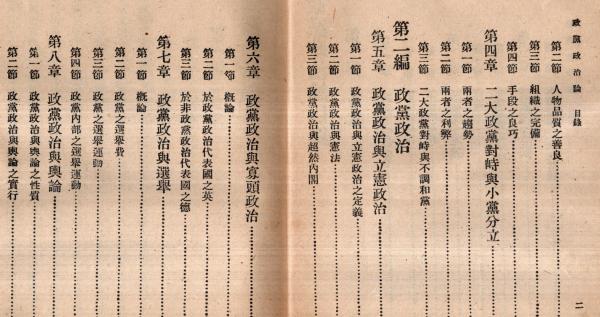 政黨政治論 目錄
第二節 人物品質之善良
第三節 組織之完備
第四節 手段之良巧
第四章 二大政黨對峙與小黨分立
第一節 兩者之趨勢
第二節 兩者之利弊
第三節 二大政黨對峙與不調和黨
第二編 政黨政治
第五章 政黨政治與立憲政治
第一節 政黨政治與立憲政治之定義
第二節 政黨政治與憲法
第三節 政黨政治與超然內閣
二
第六章 政黨政治與寡頭政治
第一節 概論
第二節 於政黨政治代表國之英
第三節 於非政黨政治代表國之德
第七章 政黨政治與選舉
第一節 概論
第二節 政黨之選舉費
第三節 政黨之選舉運動
第四節 政黨內部之選舉運動
第八章 政黨政治與輿論
第一節 政黨政治與輿論之性質
第二節 政黨政治與輿論之實行